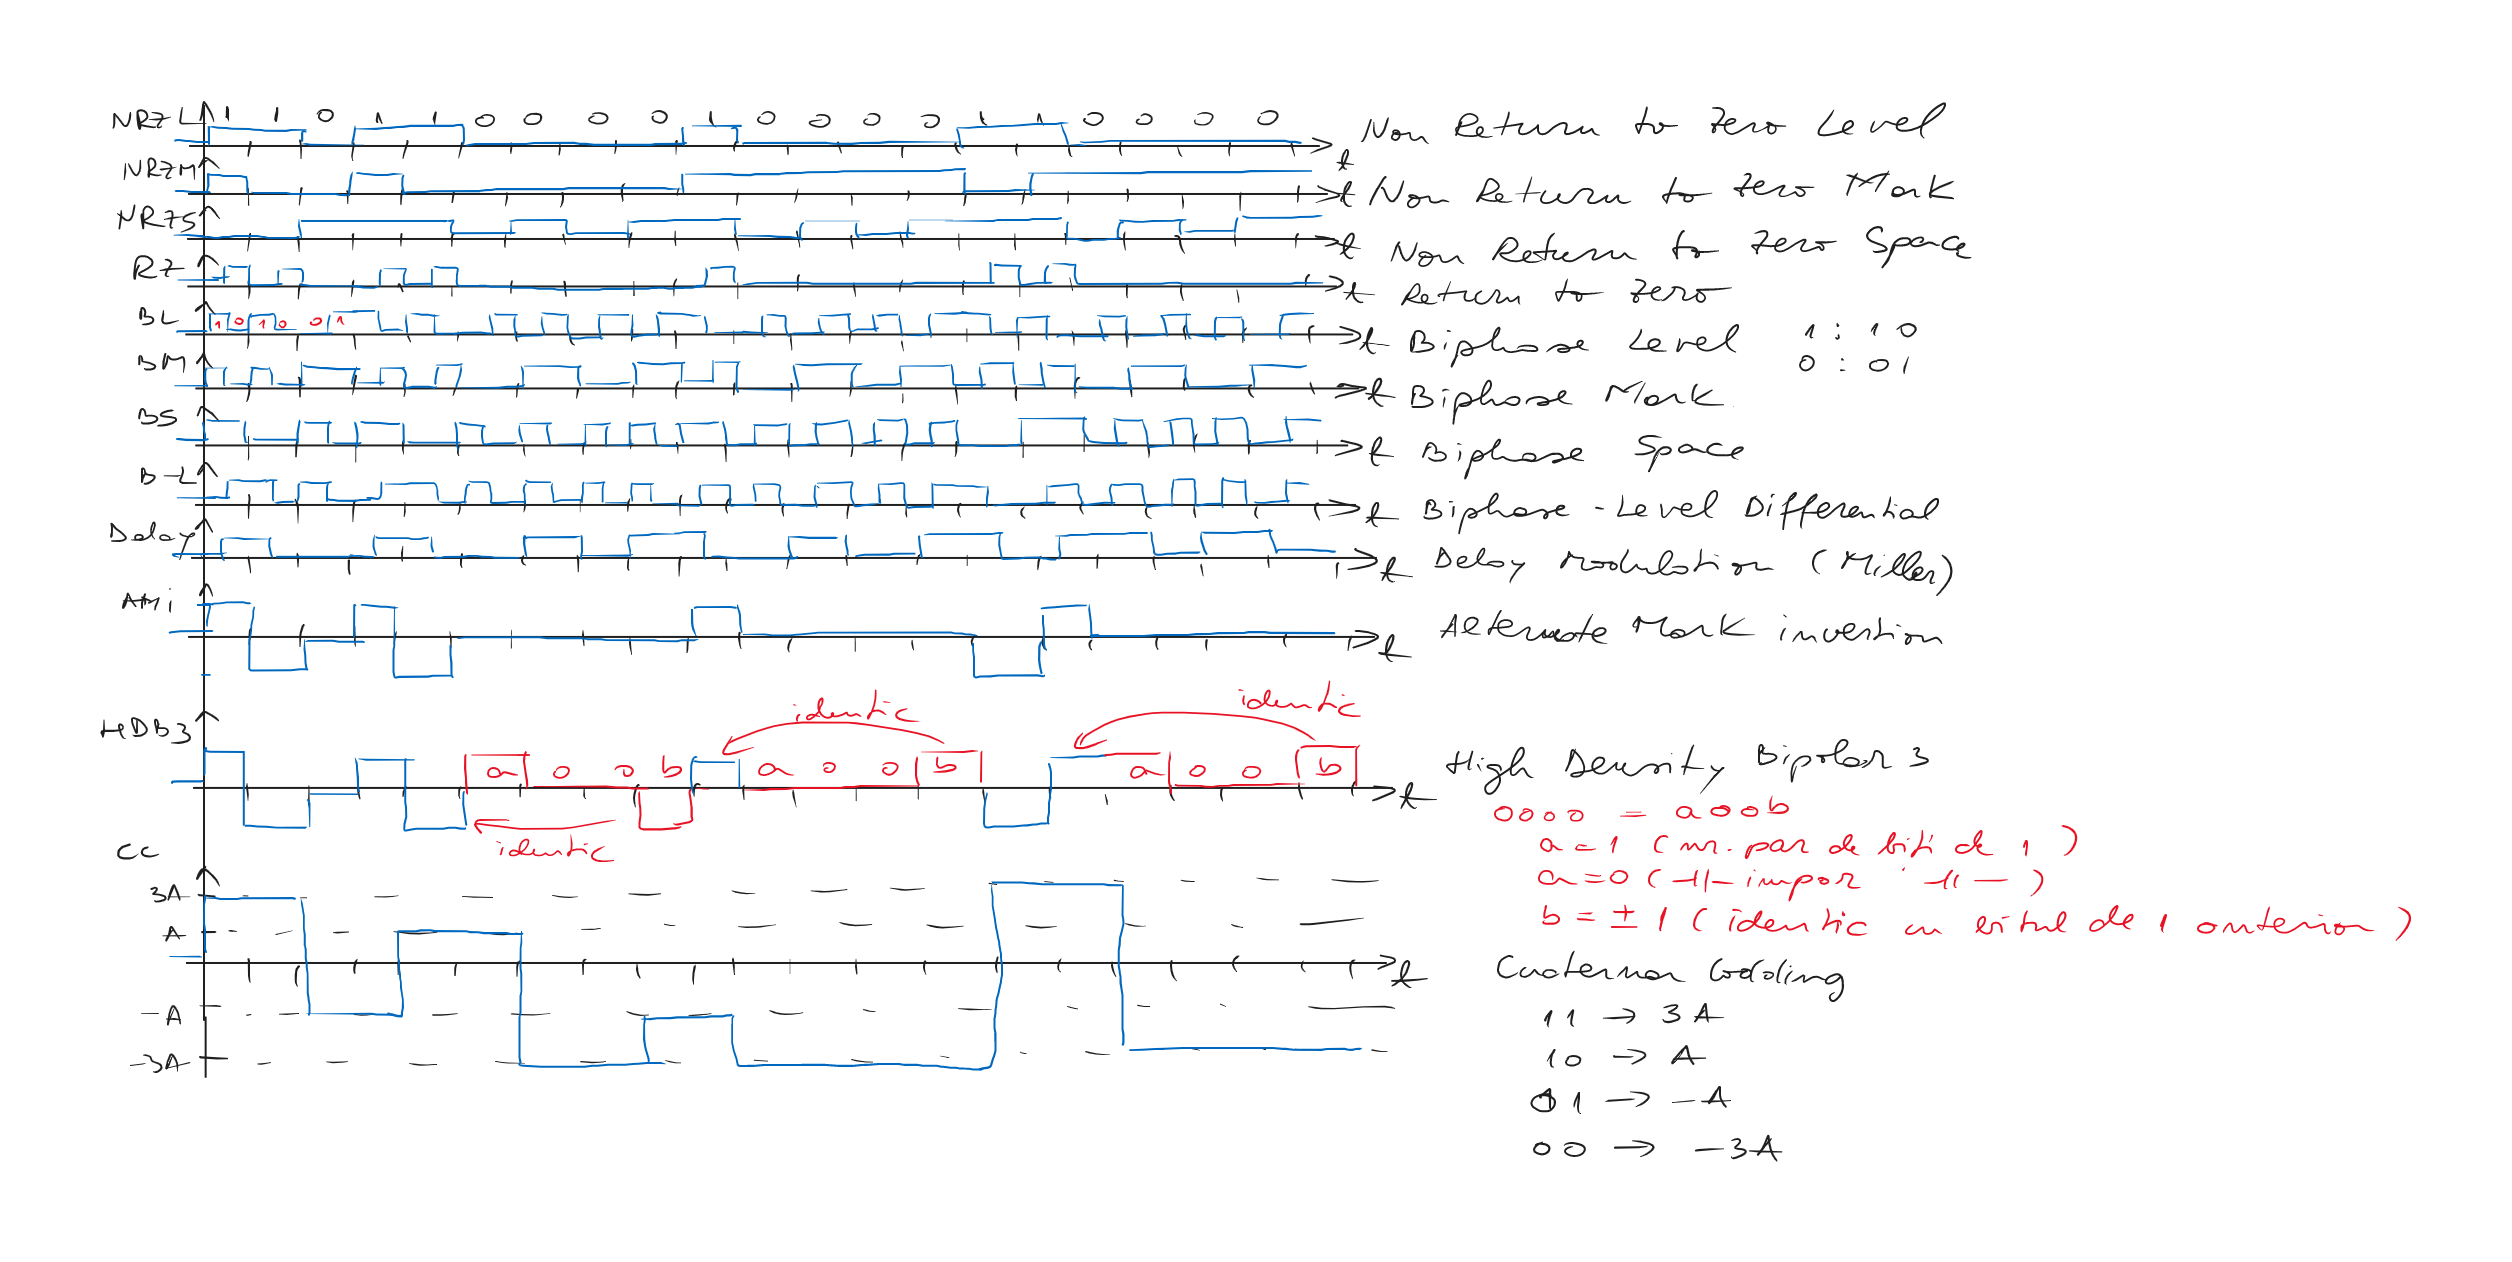 NRZ-L 1 1 0 1 1 0 0 0 0 1 0 0 0 0 1 1 0 0 0 0 t Non Return to Zero Level
NRZM t Non Return to Zero Mark
NRZS t Non Return to Zero Space
RZ t Return to Zero
BL 1 0 1 0 0 1 t Biphase Level 1 : 10
0 : 01
BM t Biphase Mark
BS t Biphase Space
B-L t Biphase-Level Differential
Delay t Delay Modulation (Miller)
AMi t Alternate Mark invertion
identic identic
HDB3 a 0 0 b a 0 0 b a 0 0 b t High Density Bipolar 3
0000 = a00b
identic
a = 1 (nr. par de biti de 1)
a = 0 (-11- impar -11-)
b = ± 1 (identic cu bitul de 1 anterior)
CC
3A
A
t Cuaternar Coding
-A
-3A
11 → 3A
10 → A
01 → -A
00 → -3A